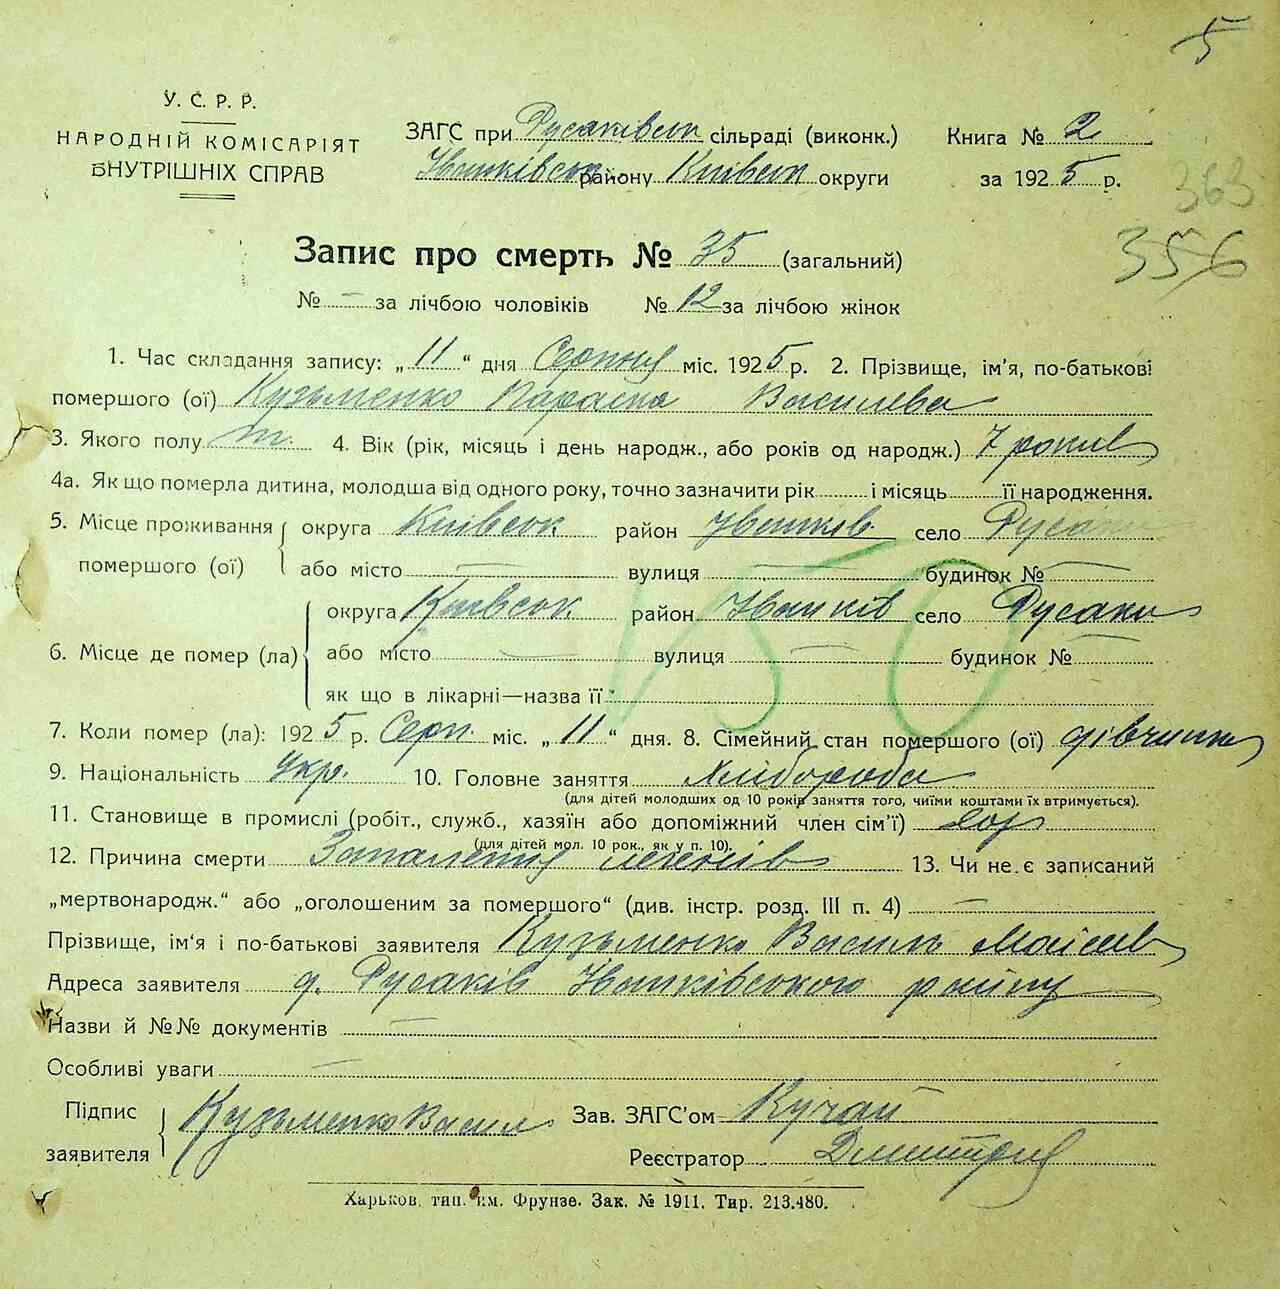 5
У. С. Р. Р.
НАРОДНІЙ КОМІСАРІЯТ
ВНУТРІШНІХ СПРАВ
ЗАГС при Русаківськ сільраді (виконк.)
Іванківськ району Київськ округи
Книга № 2
за 1925 р.
363
356
Запис про смерть № 35 (загальний)
№ — за лічбою чоловіків № 12 за лічбою жінок
1. Час складання запису: „11“ дня Серпня міс. 1925 р. 2. Прізвище, ім'я, по-батькові
помершого (ої) Кузьменко Параска Василева
3. Якого полу ж. 4. Вік (рік, місяць і день народж., або років од народж.) 7 років
4а. Як що померла дитина, молодша від одного року, точно зазначити рік и місяць її народження.
5. Місце проживання помершого (ої) округа Київськ район Іванків село Русак
або місто — вулиця — будинок № —
6. Місце де помер (ла) округа Київськ район Іванків село Русаки
або місто — вулиця — будинок № —
як що в лікарні—назва її
150
7. Коли помер (ла): 1925 р. Серп. міс. „11“ дня. 8. Сімейний стан помершого (ої) дівчина
9. Національність Укр. 10. Головне заняття Хлібороба
(для дітей молодших од 10 років заняття того, чиїми коштами їх втримується).
11. Становище в промислі (робіт., служб., хазяїн або допоміжний член сім'ї)
(для дітей мол. 10 рок., як у п. 10).
12. Причина смерти Запалення легенів 13. Чи не є записаний
„мертвонародж.“ або „оголошеним за помершого“ (див. інстр. розд. III п. 4) —
Прізвище, ім'я і по-батькові заявителя Кузьменко Василь Мойсеев
Адреса заявителя д. Русаків Іванківського району
Назви й №№ документів —
Особливі уваги —
Підпис заявителя Кузьменко Васил
Зав. ЗАГС'ом Кучай
Реєстратор
Харьков, тип. им. Фрунзе. Зак. № 1911. Тир. 213.480.